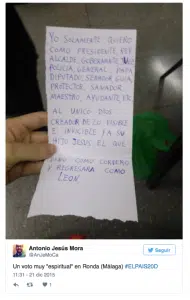 YO SOLAMENTE QUIERO
COMO PRESIDENTE, REY
ALCALDE, GOBERNANTE,
POLICIA, GENERAL PAPA
DIPUTADO, SENADOR GUIA,
PROTECTOR, SANADOR
MAESTRO, AYUDANTE, ER
AL UNICO DIOS
CREADOR DE LO VISIBLE
E INVICIBLE Y A SU
HIJO JESUS EL QUE
COMO CORDERO
Y REGRESARA COMO
LEON
Antonio Jesús Mora
@AruiaMoCa
Seguir
Un voto muy "espiritual" en Ronda (Málaga) #ELPAIS20D
11:31 - 21 dic 2015